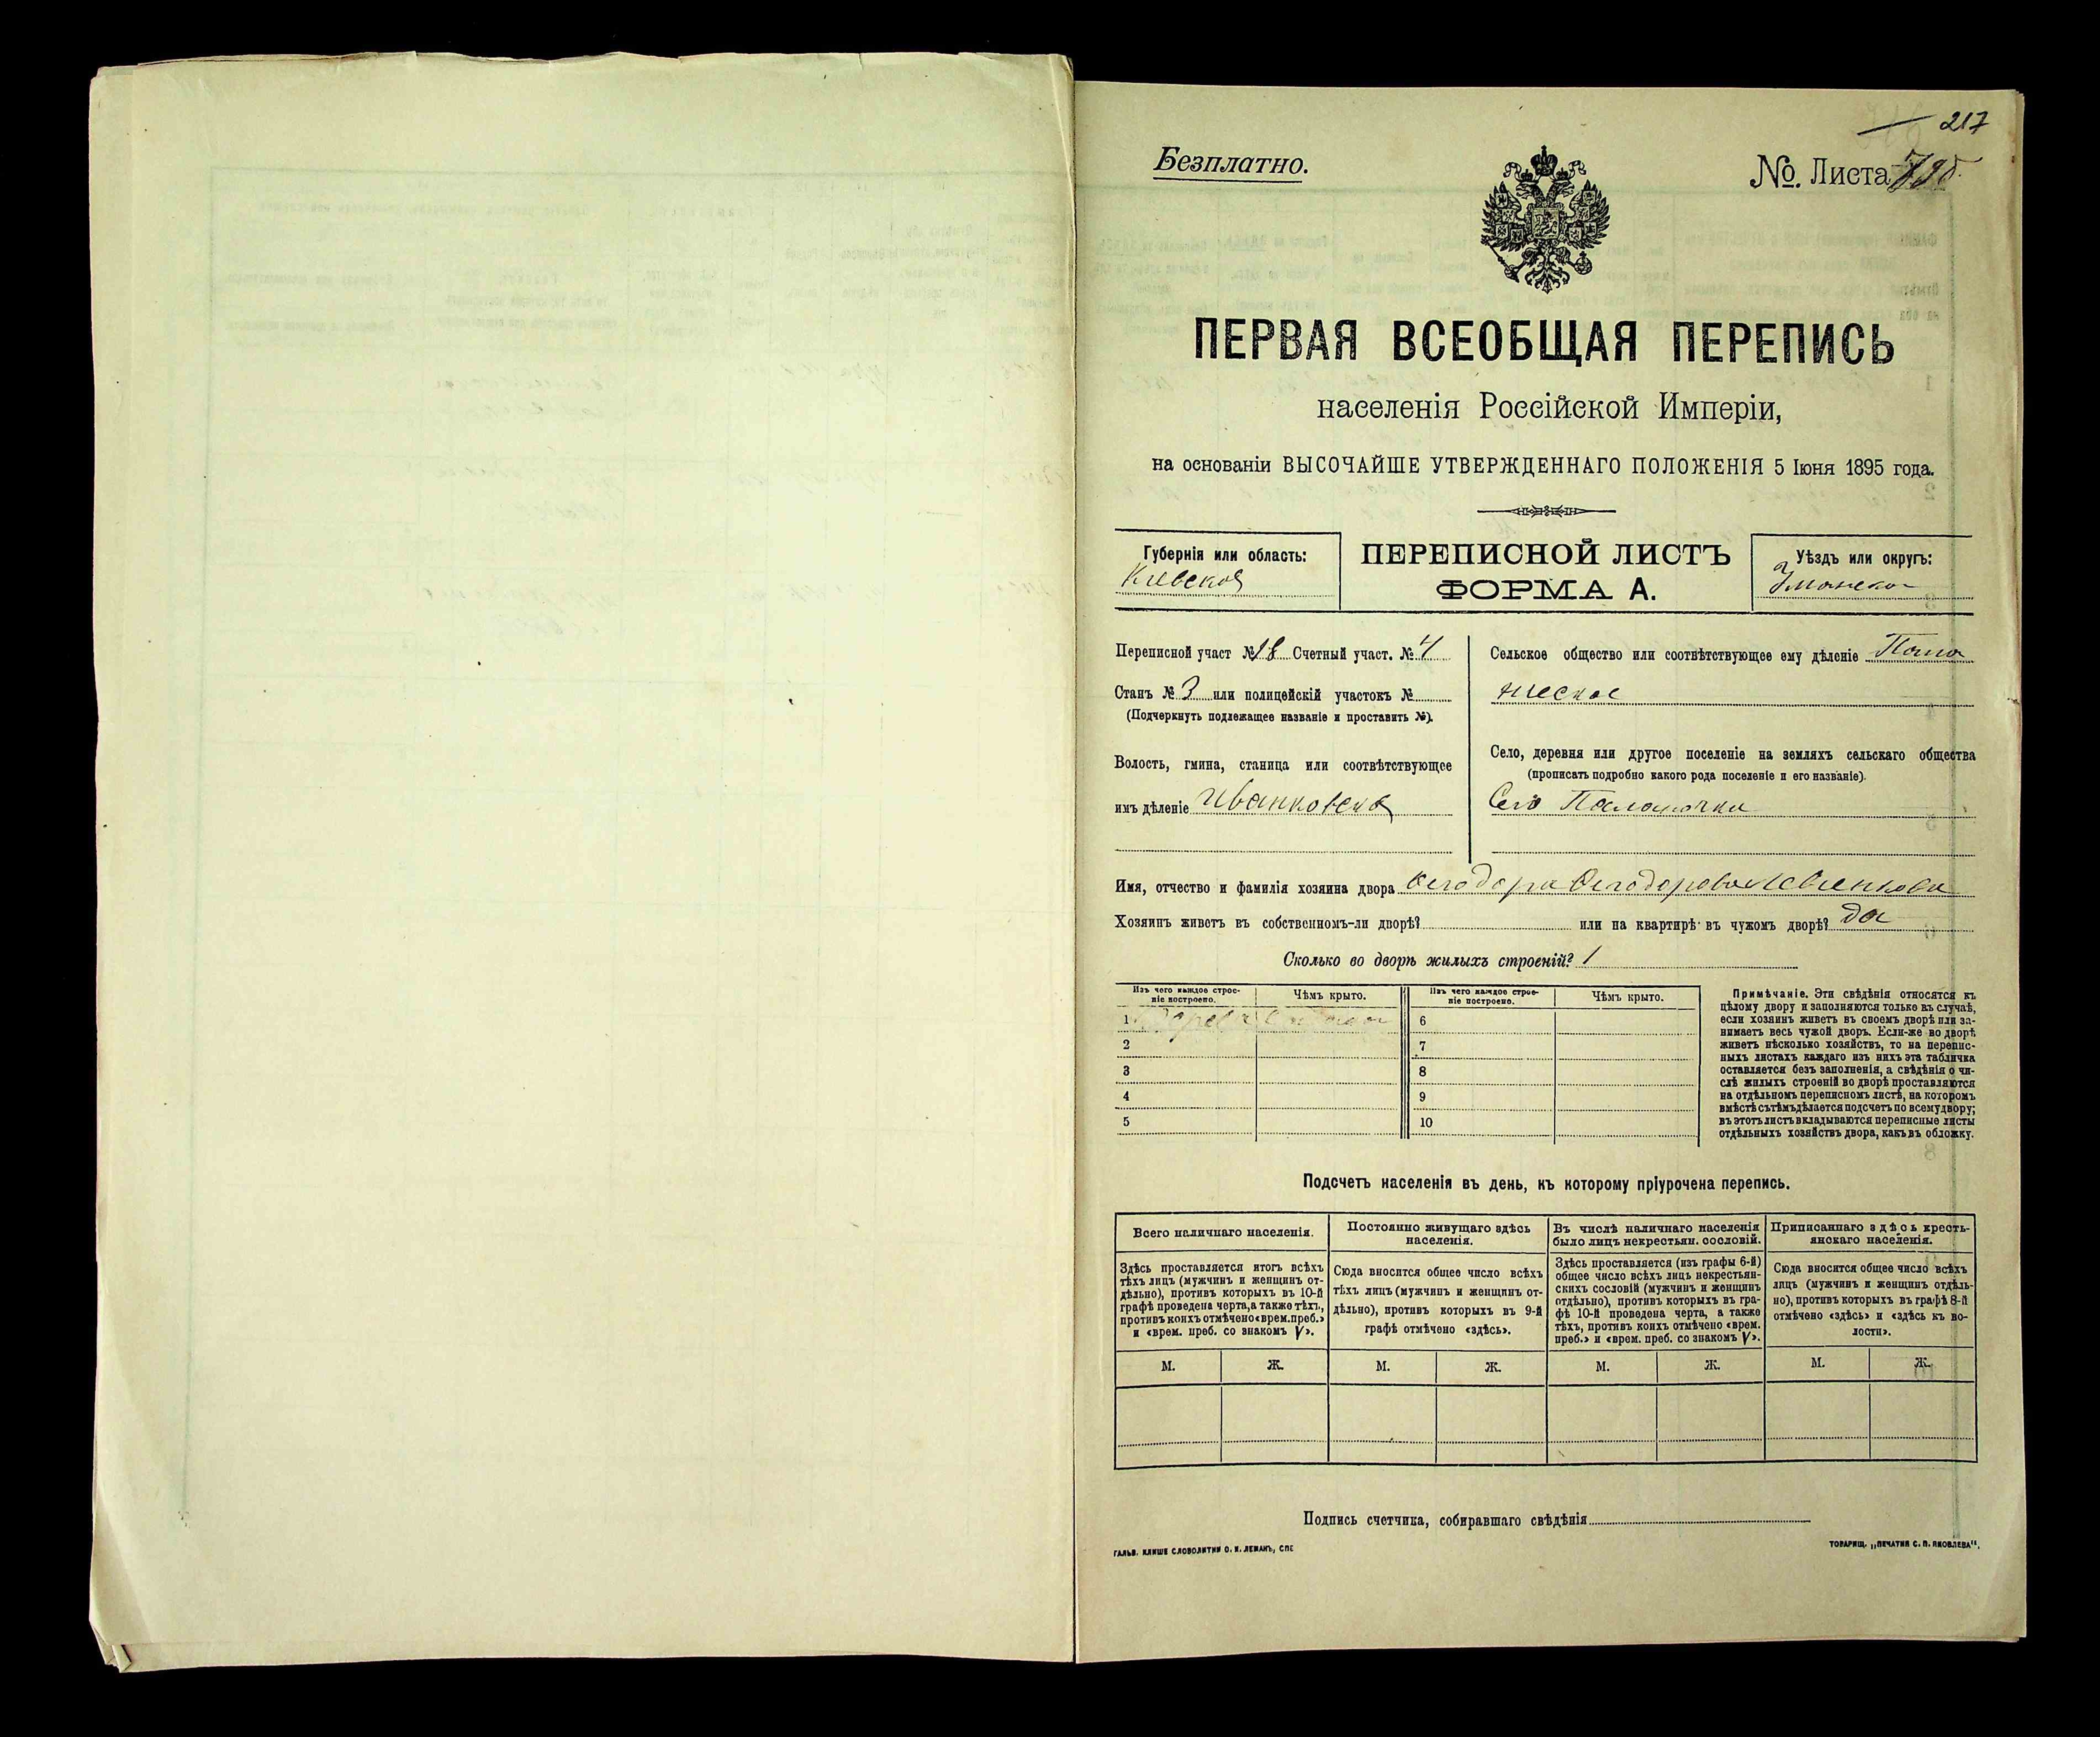 217
Безплатно.
№. Листа
ПЕРВАЯ ВСЕОБЩАЯ ПЕРЕПИСЬ
населенія Россійской Имперіи,
на основаніи ВЫСОЧАЙШЕ УТВЕРЖДЕННАГО ПОЛОЖЕНІЯ 5 Іюня 1895 года.
Губернія или область:
Кіевская
ПЕРЕПИСНОЙ ЛИСТЪ
ФОРМА А.
Уѣздъ или округъ:
Уманско
Переписной участ № 18 Счетный участ. № 4
Станъ № 3 или полицейскій участокъ №
(Подчеркнуть подлежащее названіе и проставить №).
Волость, гмина, станица или соотвѣтствующее
имъ дѣленіе Иванковская
Сельское общество или соотвѣтствующее ему дѣленіе
Село, деревня или другое поселеніе на земляхъ сельскаго общества
(прописать подробно какого рода поселеніе и его названіе).
Село
Имя, отчество и фамилія хозяина двора
Хозяинъ живетъ въ собственномъ-ли дворѣ? или на квартирѣ въ чужомъ дворѣ? да
Сколько во дворѣ жилыхъ строеній? 1
Изъ чего каждое строе-
ніе построено.
Чѣмъ крыто.
Изъ чего каждое строе-
ніе построено.
Чѣмъ крыто.
1 6
2 7
3 8
4 9
5 10
Примѣчаніе. Эти свѣдѣнія относятся къ
цѣлому двору и заполняются только въ случаѣ,
если хозяинъ живетъ въ своемъ дворѣ или за-
нимаетъ весь чужой дворъ. Если-же во дворѣ
живетъ нѣсколько хозяйствъ, то на перепис-
ныхъ листахъ каждаго изъ нихъ эта табличка
оставляется безъ заполненія, а свѣдѣнія о чи-
слѣ жилыхъ строеній во дворѣ проставляются
на отдѣльномъ переписномъ листѣ, на которомъ
вмѣстѣ съ тѣмъ дѣлается подсчетъ по всему двору;
въ этотъ листъ вкладываются переписные листы
отдѣльныхъ хозяйствъ двора, какъ въ обложку.
Подсчетъ населенія въ день, къ которому пріурочена перепись.
Всего наличнаго населенія.
Здѣсь проставляется итогъ всѣхъ
тѣхъ лицъ (мужчинъ и женщинъ от-
дѣльно), противъ которыхъ въ 10-й
графѣ проведена черта, а также тѣхъ,
противъ коихъ отмѣчено «врем. преб.»
и «врем. преб. со знакомъ V».
Постоянно живущаго здѣсь
населенія.
Сюда вносится общее число всѣхъ
тѣхъ лицъ (мужчинъ и женщинъ от-
дѣльно), противъ которыхъ въ 9-й
графѣ отмѣчено «здѣсь».
Въ числѣ наличнаго населенія
было лицъ некрестьян. сословій.
Здѣсь проставляется (изъ графы 6-й)
общее число всѣхъ лицъ некрестьян-
скихъ сословій (мужчинъ и женщинъ
отдѣльно), противъ которыхъ въ гра-
фѣ 10-й проведена черта, а также
тѣхъ, противъ коихъ отмѣчено «врем.
преб.» и «врем. преб. со знакомъ V».
Приписаннаго здѣсь кресть-
янскаго населенія.
Сюда вносится общее число всѣхъ
лицъ (мужчинъ и женщинъ отдѣль-
но), противъ которыхъ въ графѣ 8-й
отмѣчено «здѣсь» и «здѣсь къ во-
лости».
М. Ж. М. Ж. М. Ж. М. Ж.
Подпись счетчика, собиравшаго свѣдѣнія
ГАЛЬВ. КЛИШЕ СЛОВОЛИТНИ О. И. ЛЕМАНЪ, СПБ
ТОВАРИЩ. „ПЕЧАТНЯ С. П. ЯКОВЛЕВА".